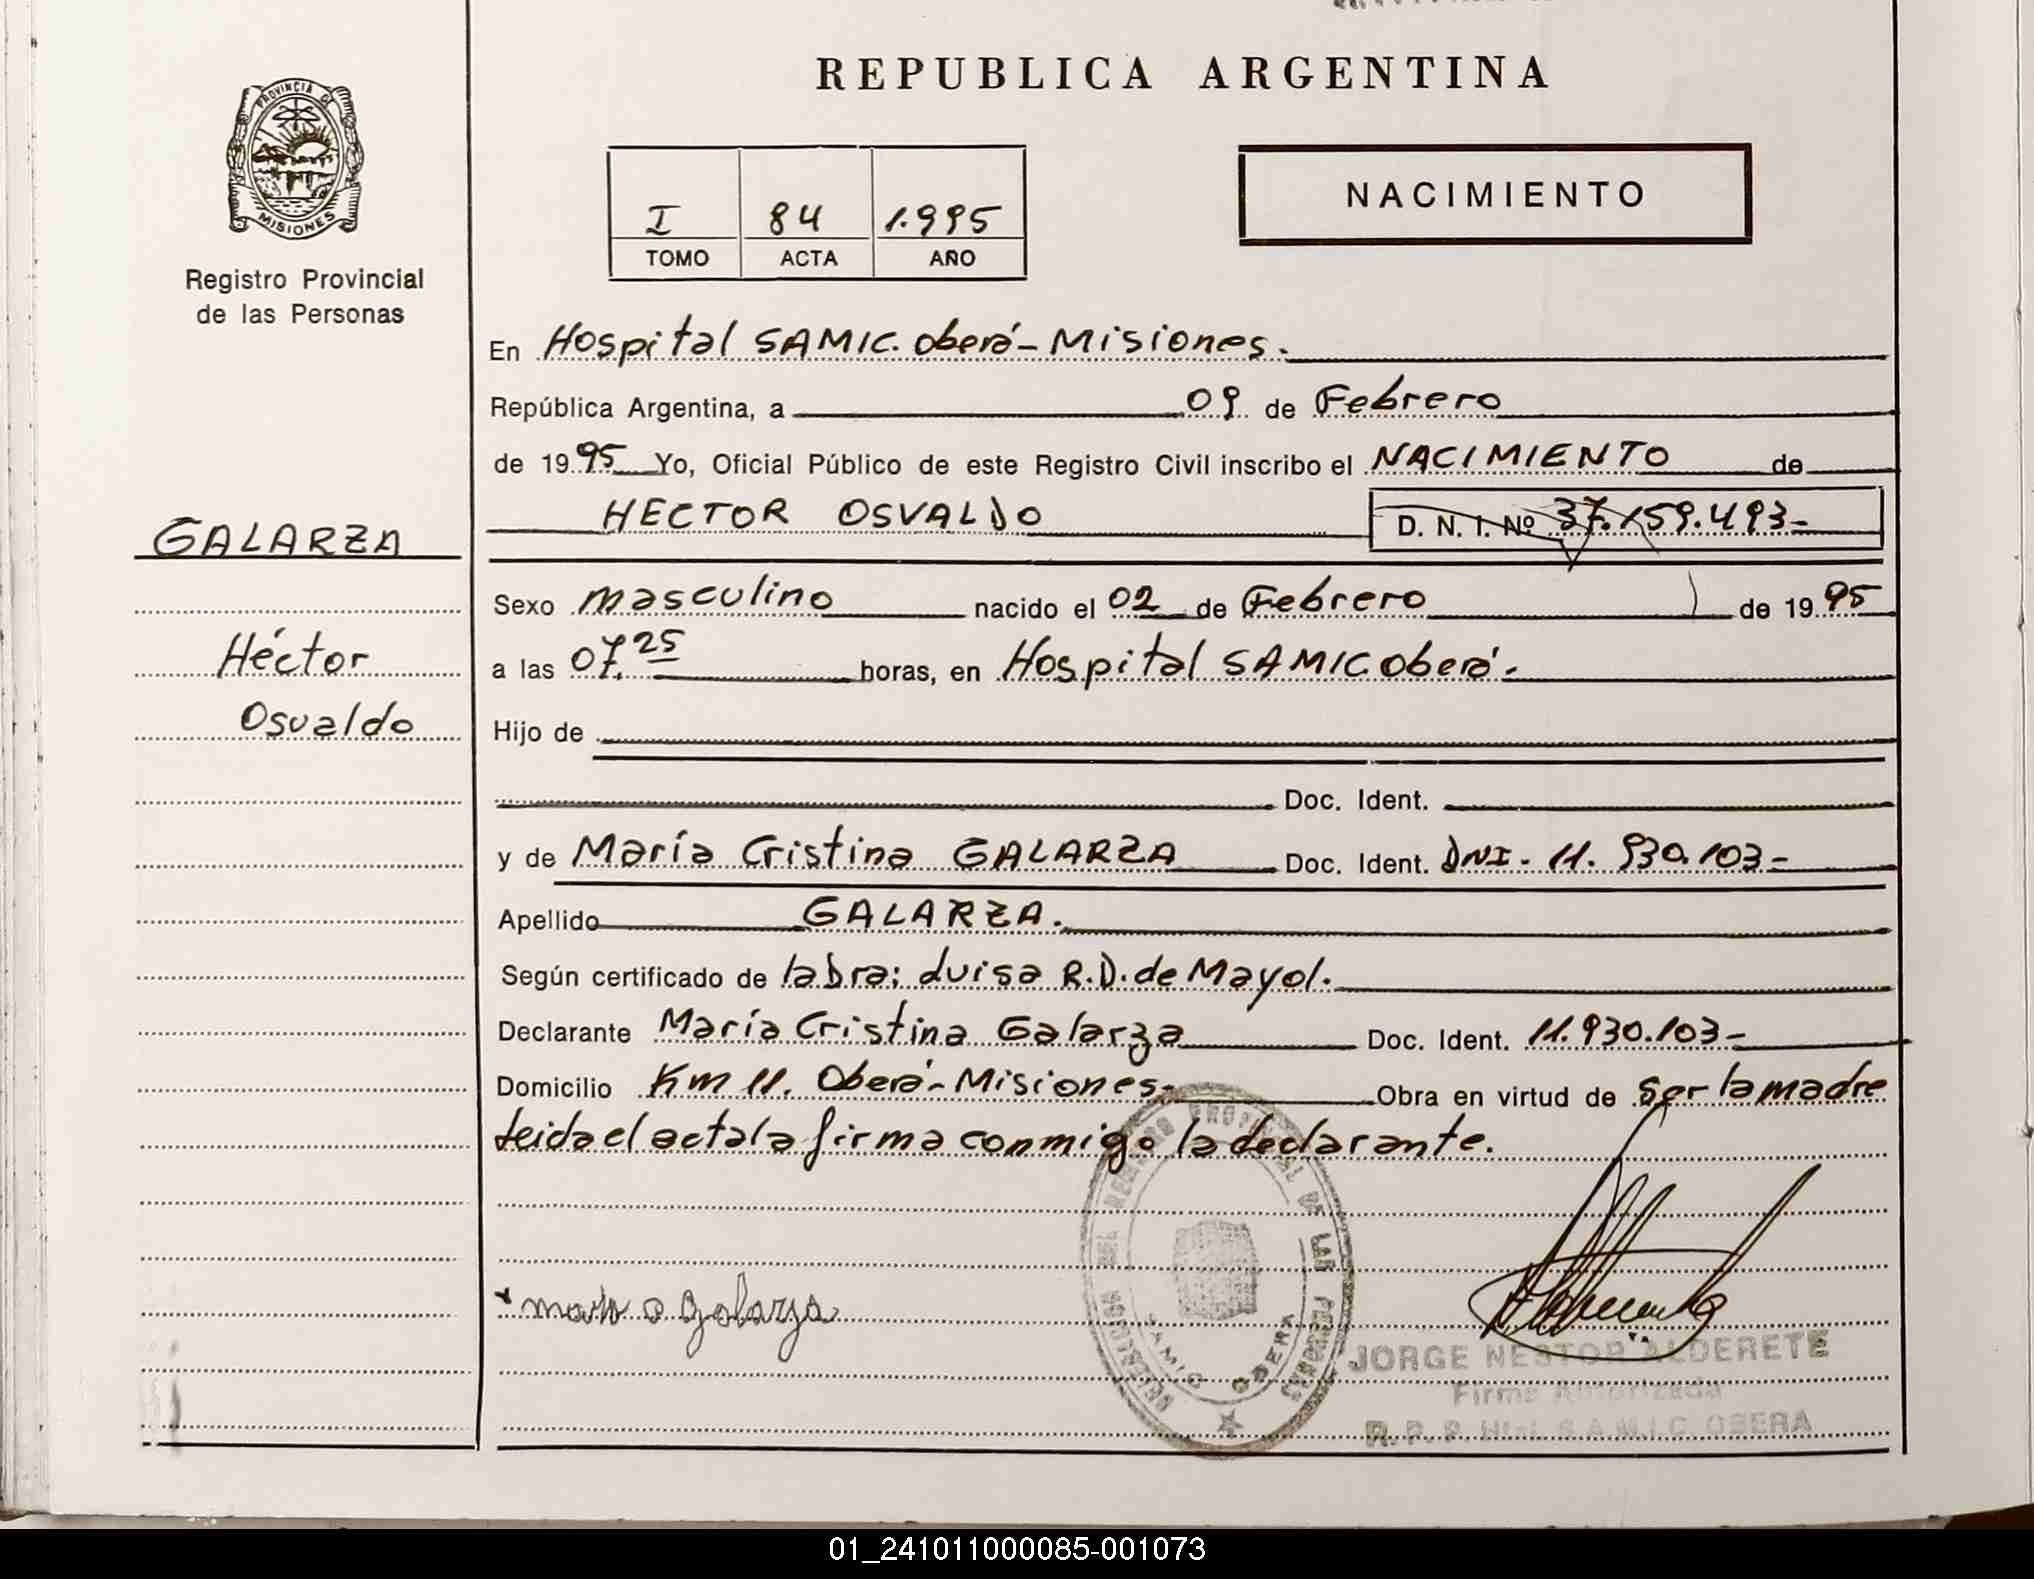 REPUBLICA ARGENTINA
PROVINCIA DE
MISIONES
Registro Provincial
de las Personas
I 84 1.995
TOMO ACTA AÑO
NACIMIENTO
En Hospital SAMIC. Oberá - Misiones.
República Argentina, a 09 de Febrero
de 1995 Yo, Oficial Público de este Registro Civil inscribo el NACIMIENTO de
HECTOR OSVALDO D. N. I. Nº 37.159.493-
GALARZA
Héctor
Osvaldo
Sexo masculino nacido el 02 de Febrero de 1995
a las 07.25 horas, en Hospital SAMIC Oberá.
Hijo de
Doc. Ident.
y de María Cristina GALARZA Doc. Ident. DNI. 11.930.103-
Apellido GALARZA.
Según certificado de la Dra: Luisa R.D. de Mayol.
Declarante María Cristina Galarza Doc. Ident. 11.930.103-
Domicilio Km 11. Oberá - Misiones - Obra en virtud de ser la madre
leida el acta la firma conmigo la declarante.
Galarza
DIRECCION DEL REGISTRO PROVINCIAL DE LAS PERSONAS
SAMIC OBERA
JORGE NESTOR ALDERETE
Firma Autorizada
R. P. P. Htal. S.A.M.I.C. OBERA
01_241011000085-001073